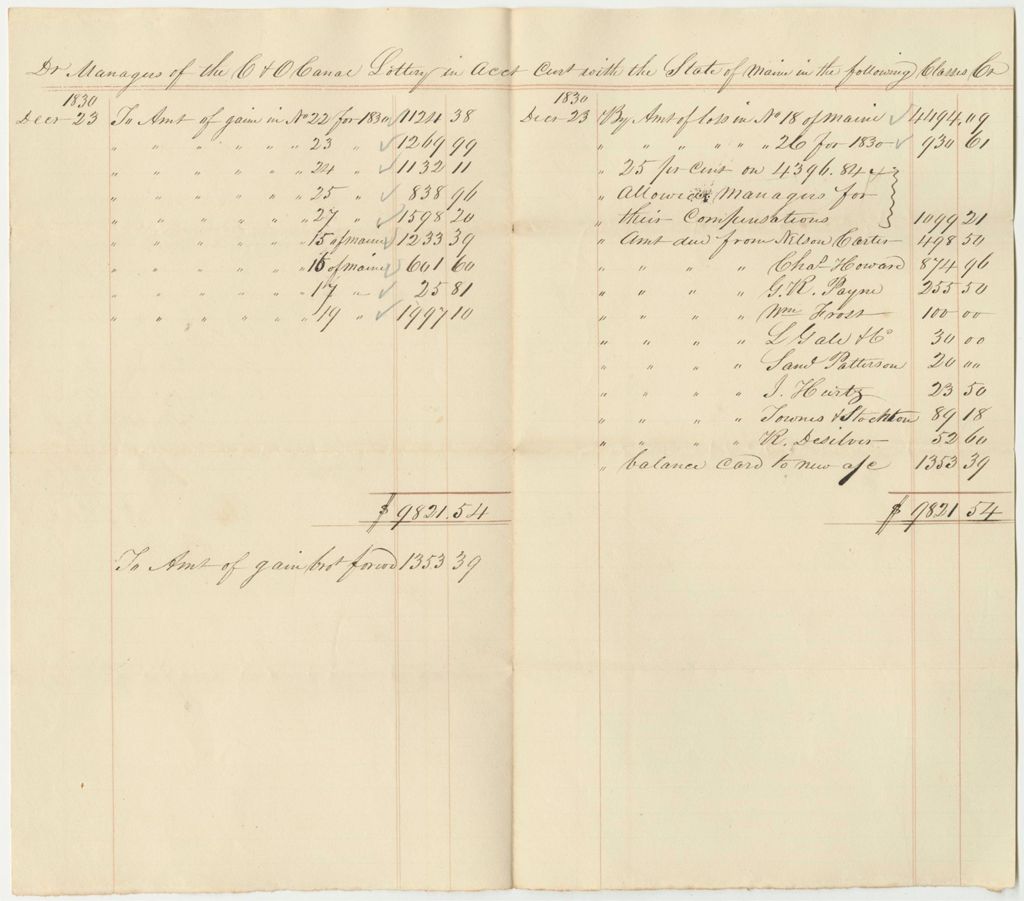 Dr Managers of the C & O Canal Lottery in acct Curt with the State of Maine in the following Classes Cr
1830
Decr 23 To Amt of gain in No 22 for 1830 1124 38
" " " " " 23 " 1269 99
" " " " 24 " 1132 11
" " " " 25 " 838 96
" " " " 27 " 1598 20
" " " " " " 15 of maine 1233 39
" " " " " " 16 of maine 601 60
" " " " " " 17 " 25 81
" " " " " " 19 " 1997 10
$ 9821.54
To Amt of gain brot forwd 1353 39
1830
Decr 23 By Amt of loss in No 18 of maine 4494.09
" " " " " " 26 for 1830 930 61
" 25 per cent on 4396.84
" allowed Managers for
" their Compensations 1099 21
" Amt due from Nelson Carter 498 50
" " " " Chas Howard 874 96
" " " " G. R. Payne 255 50
" " " " Wm Frost 100 00
" " " " L Gale & Co 30 00
" " " " Saml Patterson 20 00
" " " " J. Hurtz 23 50
" " " " Townes & Stockton 89 18
" " " " R. Desilver 52 60
" balance card to new a/c 1353 39
$ 9821 54